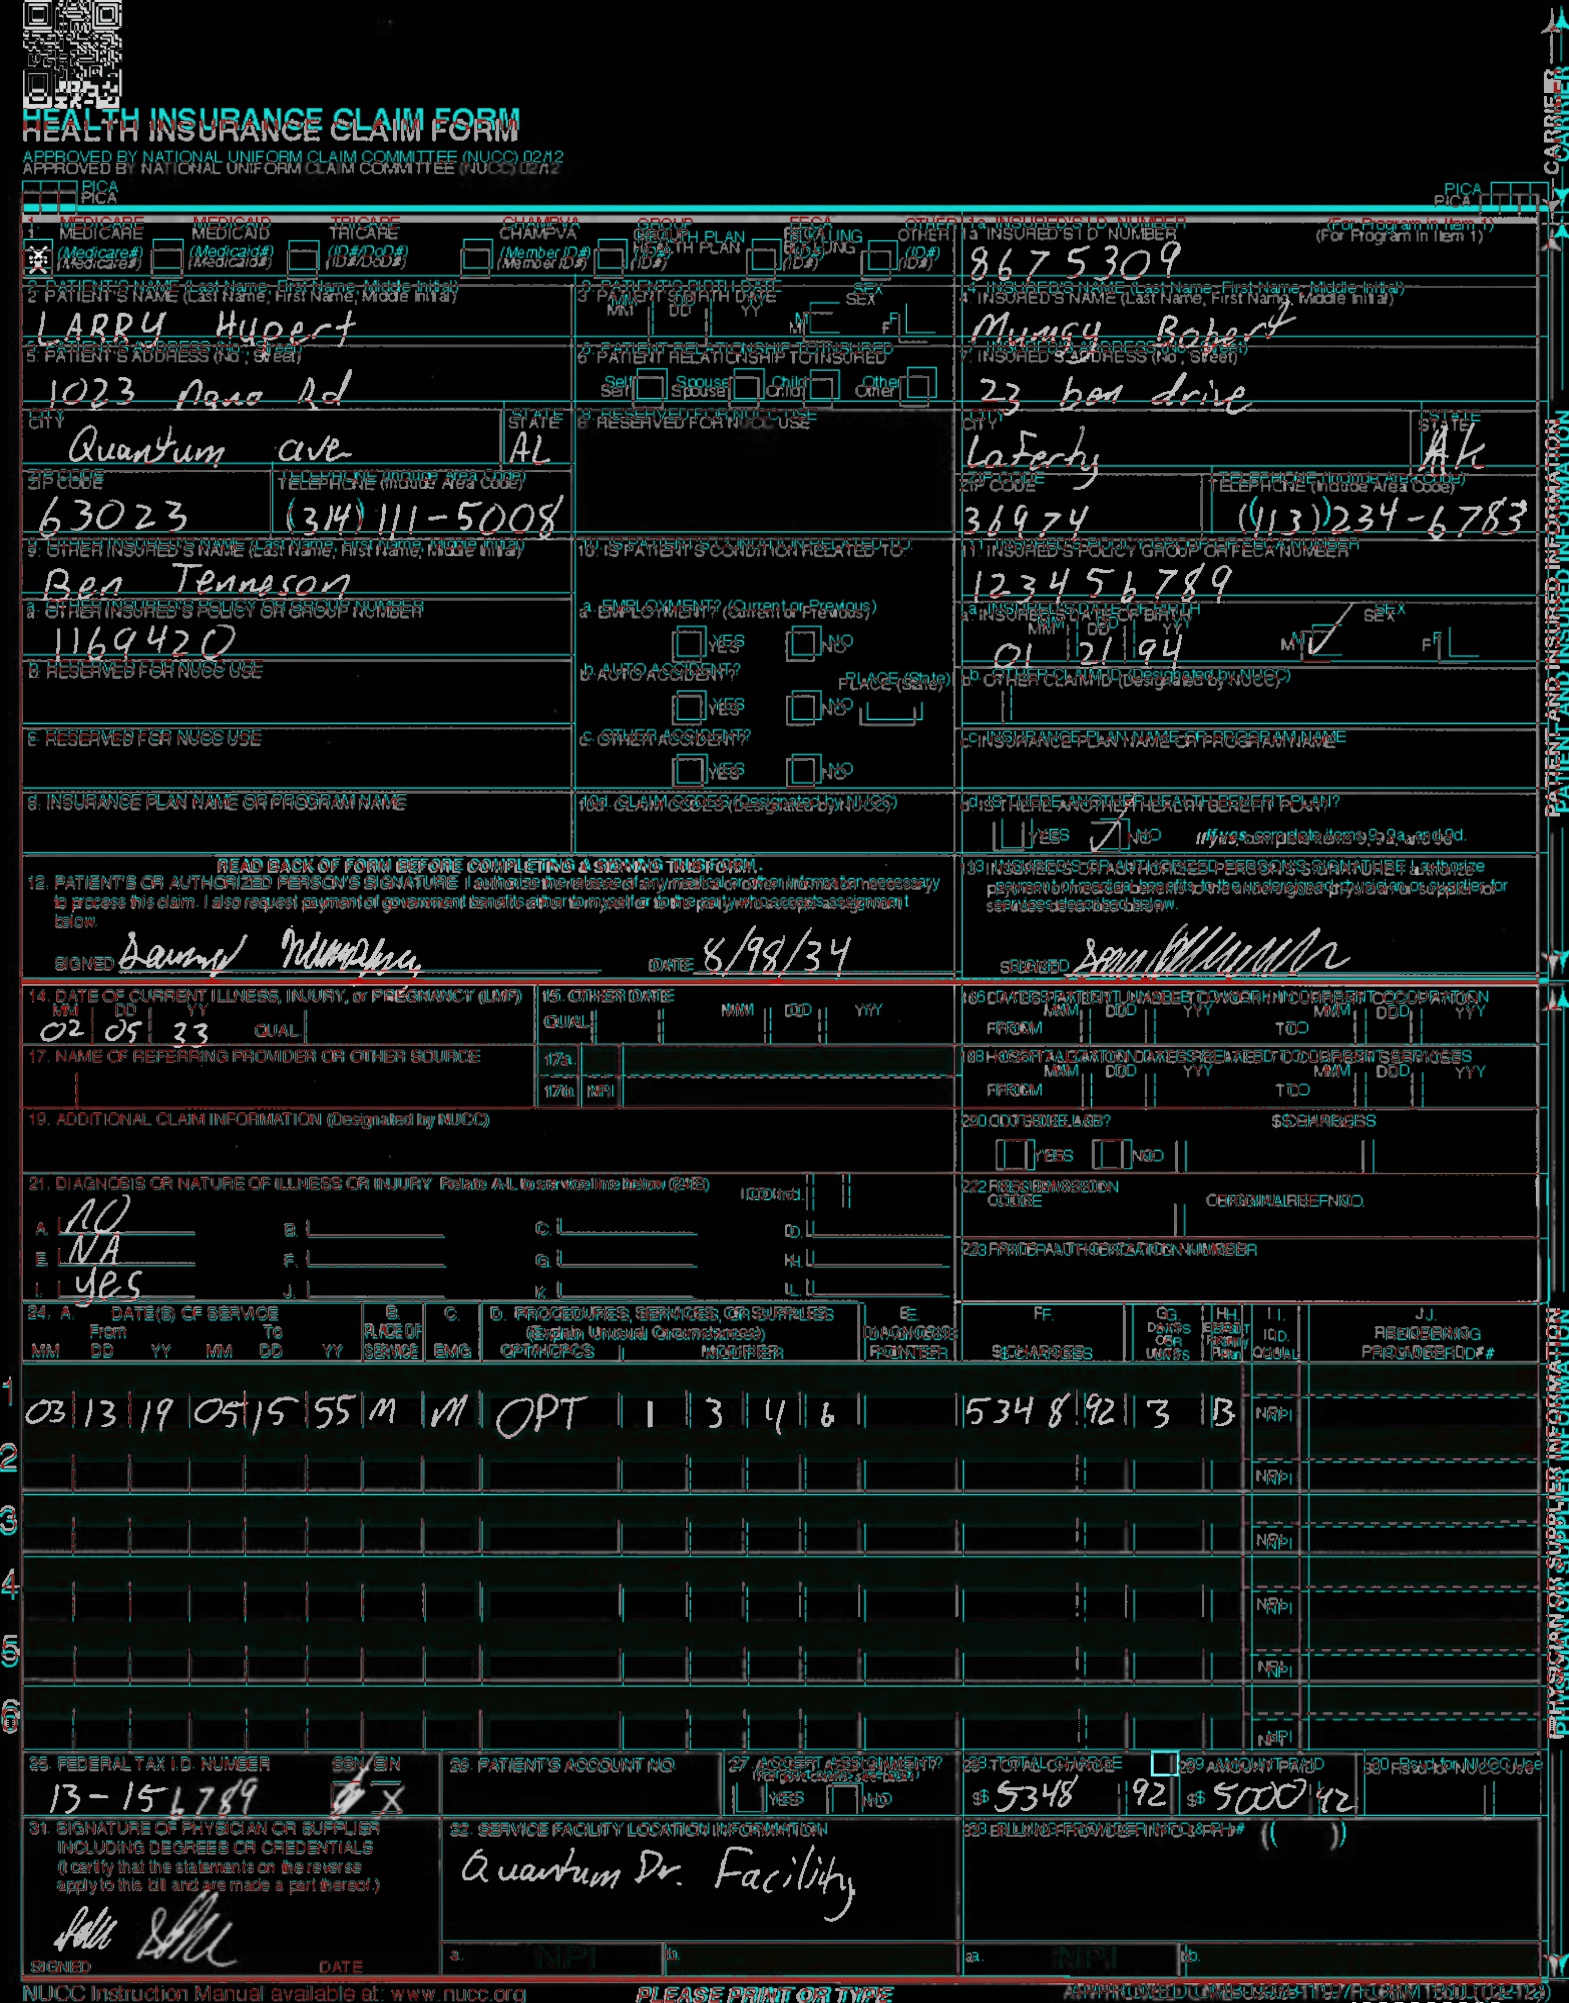 HEALTH INSURANCE CLAIM FORM
APPROVED BY NATIONAL UNIFORM CLAIM COMMITTEE (NUCC) 02/12
PICA
PICA
CARRIER
1. MEDICARE MEDICAID TRICARE CHAMPVA GROUP HEALTH PLAN FECA BLK LUNG OTHER
(Medicare#) (Medicaid#) (ID#/DoD#) (Member ID#) (ID#) (ID#) (ID#)
1a. INSURED'S I.D. NUMBER (For Program in Item 1)
8675309
2. PATIENT'S NAME (Last Name, First Name, Middle Initial)
LARRY Hupert
3. PATIENT'S BIRTH DATE SEX
MM DD YY M F
4. INSURED'S NAME (Last Name, First Name, Middle Initial)
5. PATIENT'S ADDRESS (No., Street)
1023 Rd
6. PATIENT RELATIONSHIP TO INSURED
Self Spouse Child Other
7. INSURED'S ADDRESS (No., Street)
23 ben drive
CITY STATE
Quantum ave AL
8. RESERVED FOR NUCC USE
CITY STATE
Laferty AK
ZIP CODE TELEPHONE (Include Area Code)
63023 (314) 111-5008
ZIP CODE TELEPHONE (Include Area Code)
36974 (113) 234-6783
9. OTHER INSURED'S NAME (Last Name, First Name, Middle Initial)
Ben Tenneson
10. IS PATIENT'S CONDITION RELATED TO:
11. INSURED'S POLICY GROUP OR FECA NUMBER
123456789
a. OTHER INSURED'S POLICY OR GROUP NUMBER
1169420
a. EMPLOYMENT? (Current or Previous)
YES NO
a. INSURED'S DATE OF BIRTH SEX
MM DD YY M F
01 21 94
b. RESERVED FOR NUCC USE
b. AUTO ACCIDENT? PLACE (State)
YES NO
b. OTHER CLAIM ID (Designated by NUCC)
c. RESERVED FOR NUCC USE
c. OTHER ACCIDENT?
YES NO
c. INSURANCE PLAN NAME OR PROGRAM NAME
d. INSURANCE PLAN NAME OR PROGRAM NAME
10d. CLAIM CODES (Designated by NUCC)
d. IS THERE ANOTHER HEALTH BENEFIT PLAN?
YES NO If yes, complete items 9, 9a, and 9d.
READ BACK OF FORM BEFORE COMPLETING & SIGNING THIS FORM.
12. PATIENT'S OR AUTHORIZED PERSON'S SIGNATURE I authorize the release of any medical or other information necessary
to process this claim. I also request payment of government benefits either to myself or to the party who accepts assignment
below.
SIGNED DATE 8/98/34
13. INSURED'S OR AUTHORIZED PERSON'S SIGNATURE I authorize
payment of medical benefits to the undersigned physician or supplier for
services described below.
SIGNED
PATIENT AND INSURED INFORMATION
14. DATE OF CURRENT ILLNESS, INJURY, or PREGNANCY (LMP)
MM DD YY
02 05 33 QUAL.
15. OTHER DATE
QUAL. MM DD YY
16. DATES PATIENT UNABLE TO WORK IN CURRENT OCCUPATION
MM DD YY MM DD YY
FROM TO
17. NAME OF REFERRING PROVIDER OR OTHER SOURCE
17a.
17b. NPI
18. HOSPITALIZATION DATES RELATED TO CURRENT SERVICES
MM DD YY MM DD YY
FROM TO
19. ADDITIONAL CLAIM INFORMATION (Designated by NUCC)
20. OUTSIDE LAB? $ CHARGES
YES NO
21. DIAGNOSIS OR NATURE OF ILLNESS OR INJURY Relate A-L to service line below (24E) ICD Ind.
A. NO B. C. D.
E. NA F. G. H.
I. yes J. K. L.
22. RESUBMISSION CODE ORIGINAL REF. NO.
23. PRIOR AUTHORIZATION NUMBER
24. A. DATE(S) OF SERVICE B. C. D. PROCEDURES, SERVICES, OR SUPPLIES E. F. G. H. I. J.
From To PLACE OF (Explain Unusual Circumstances) DIAGNOSIS DAYS OR EPSDT Family ID. RENDERING
MM DD YY MM DD YY SERVICE EMG CPT/HCPCS MODIFIER POINTER $ CHARGES UNITS Plan QUAL. PROVIDER ID. #
1 03 13 19 05 15 55 M M OPT 1 3 4 6 5348 92 3 B NPI
2 NPI
3 NPI
4 NPI
5 NPI
6 NPI
PHYSICIAN OR SUPPLIER INFORMATION
25. FEDERAL TAX I.D. NUMBER SSN EIN
13-156789 X
26. PATIENT'S ACCOUNT NO.
27. ACCEPT ASSIGNMENT?
(For govt. claims, see back)
YES NO
28. TOTAL CHARGE
$ 5348 92
29. AMOUNT PAID
$ 5000 42
30. Rsvd for NUCC Use
31. SIGNATURE OF PHYSICIAN OR SUPPLIER
INCLUDING DEGREES OR CREDENTIALS
(I certify that the statements on the reverse
apply to this bill and are made a part thereof.)
SIGNED DATE
32. SERVICE FACILITY LOCATION INFORMATION
Quantum Dr. Facility
a. NPI b.
33. BILLING PROVIDER INFO & PH # ( )
a. NPI b.
NUCC Instruction Manual available at: www.nucc.org
PLEASE PRINT OR TYPE